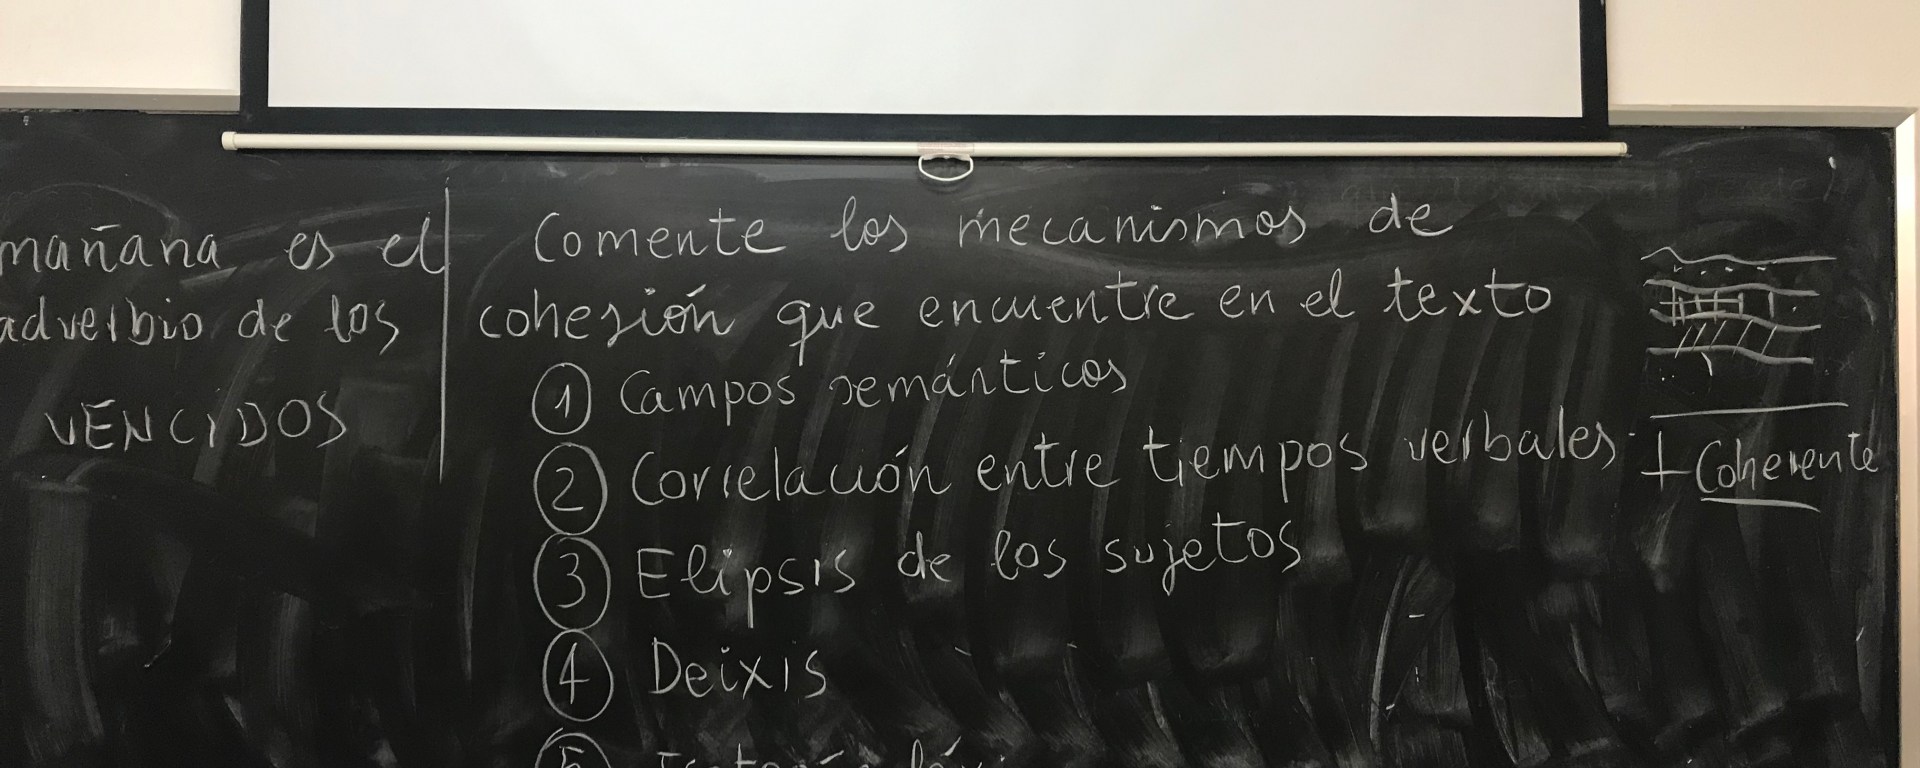 mañana es el
adverbio de los
VENCIDOS
Comente los mecanismos de
cohesión que encuentre en el texto
① Campos semánticos
② Correlación entre tiempos verbales
③ Elipsis de los sujetos
④ Deixis
⑤
+ Coherente